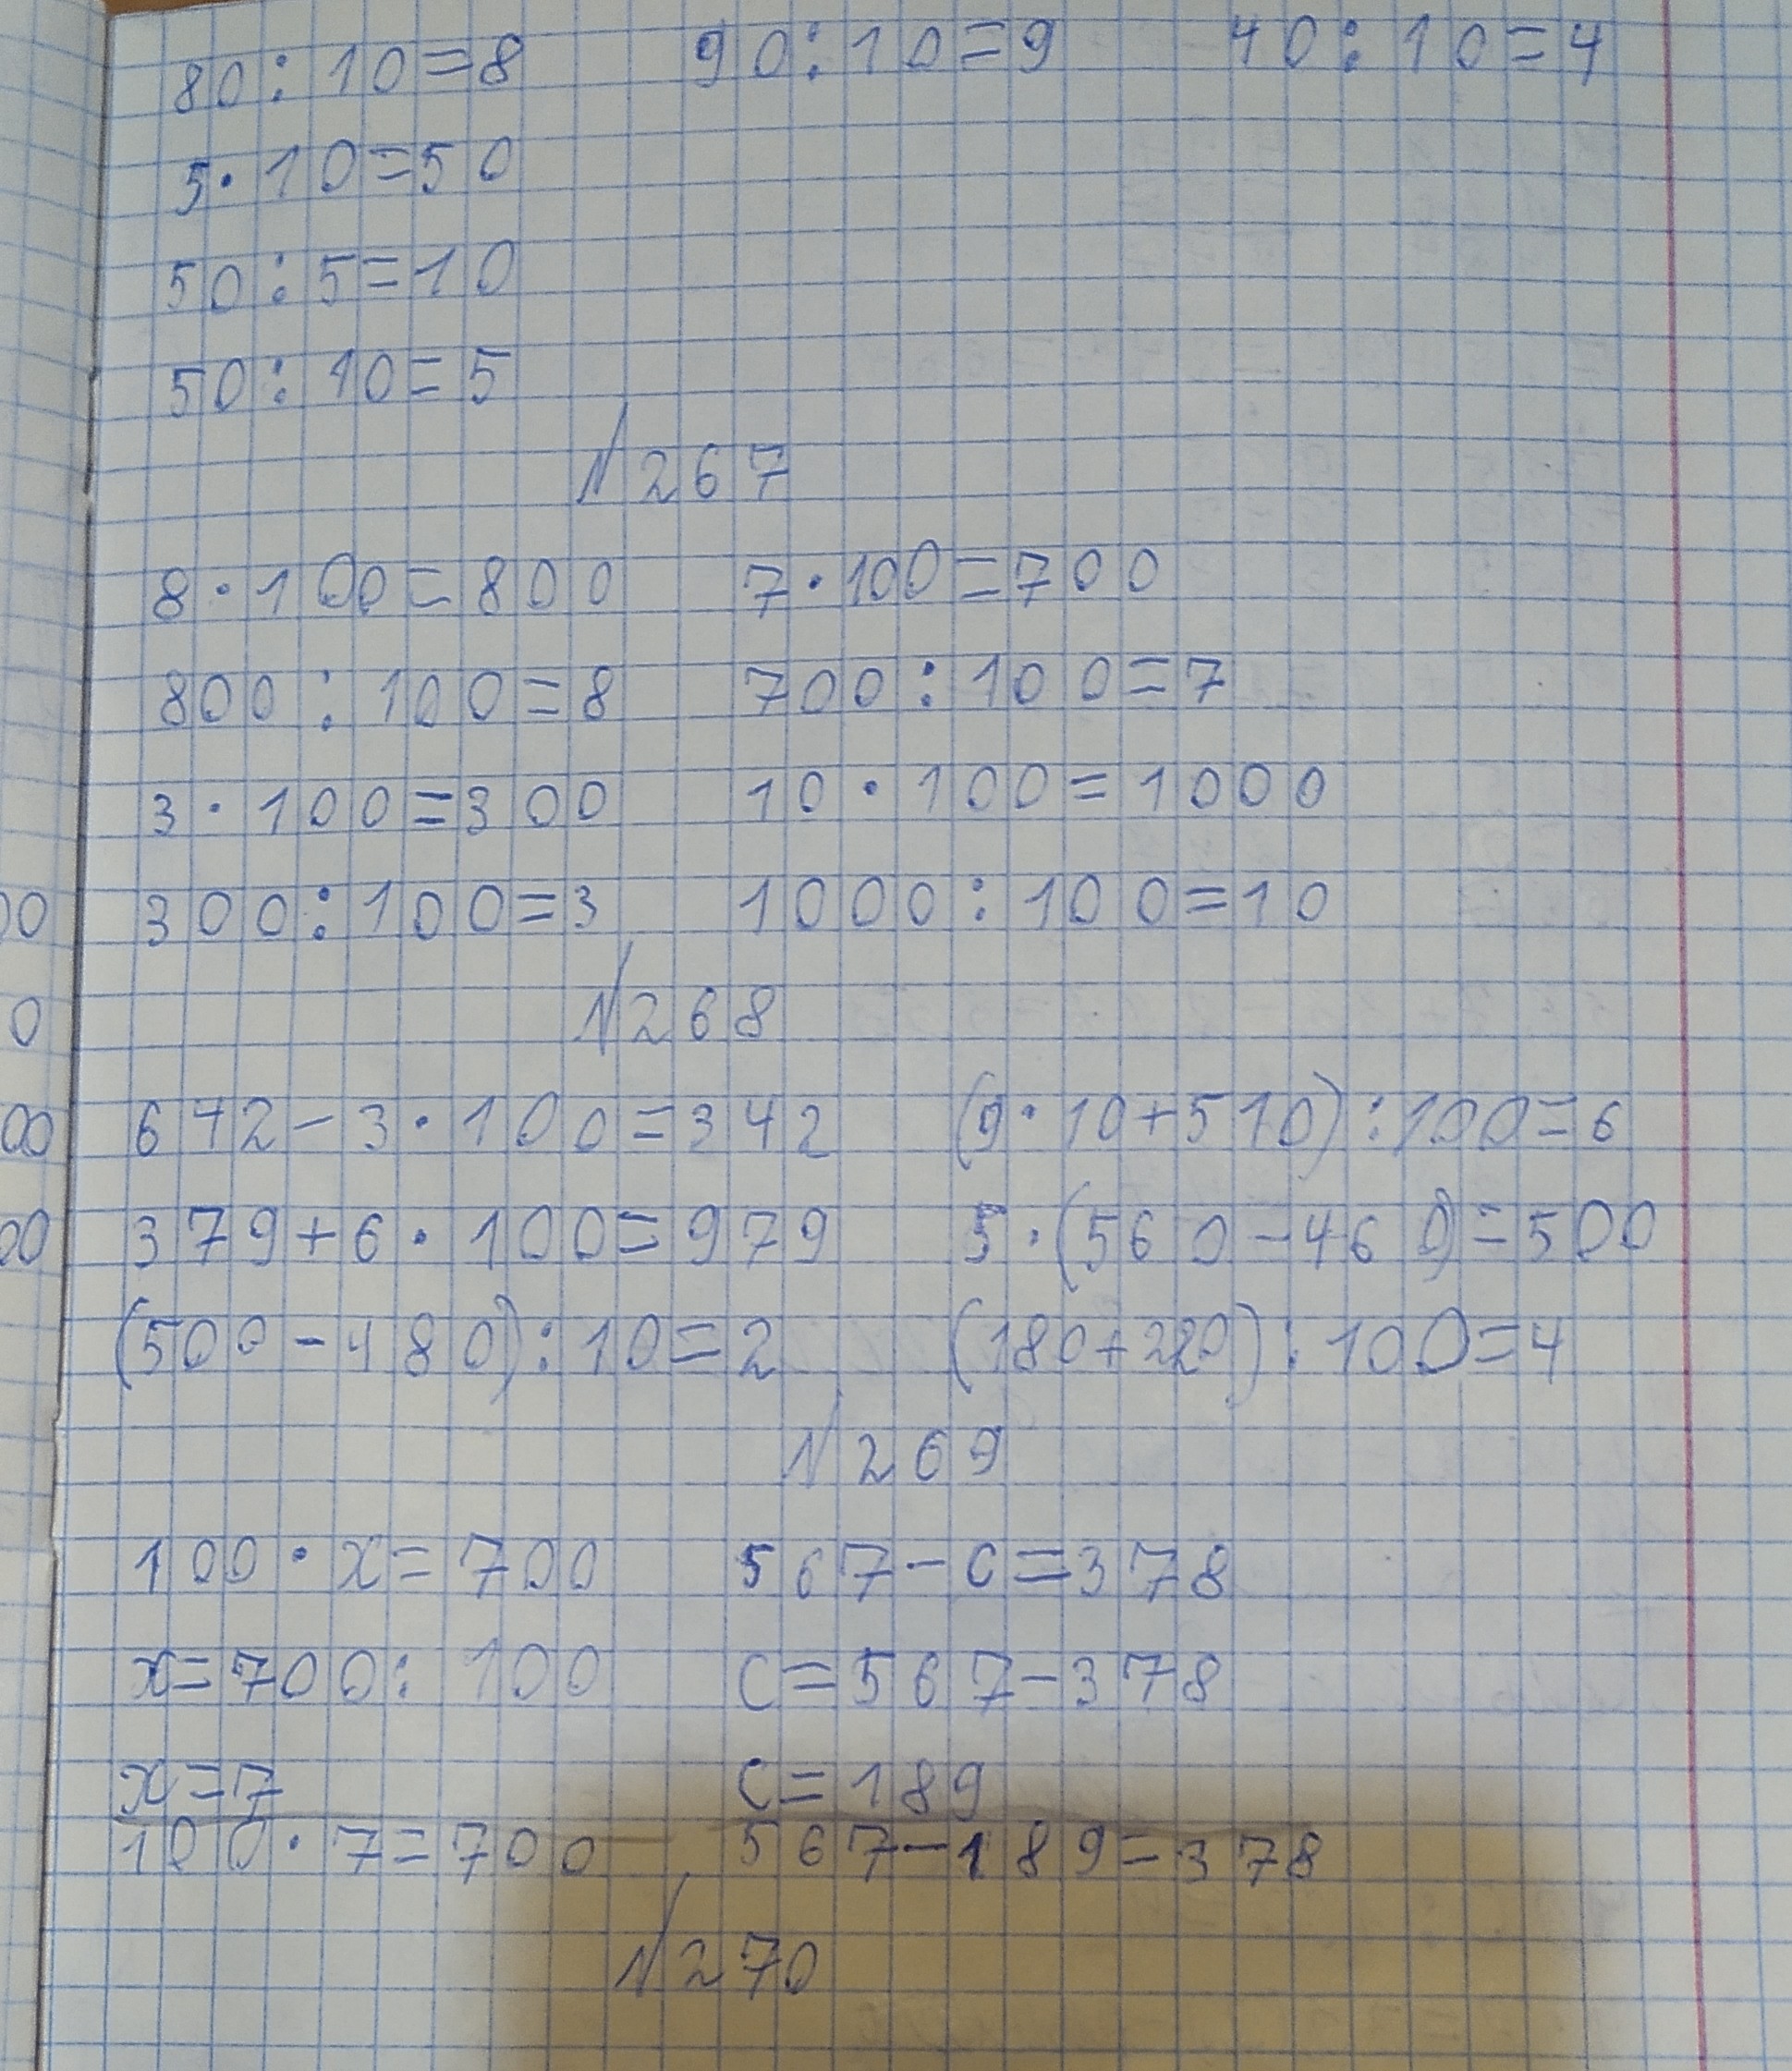 80:10=8 90:10=9 40:10=4
5·10=50
50:5=10
50:10=5
N267
8·100=800 7·100=700
800:100=8 700:100=7
3·100=300 10·100=1000
00 300:100=3 1000:100=10
N268
0
00 642-3·100=342 (9·10+510):100=6
00 379+6·100=979 5·(560-460)=500
(500-480):10=2 (180+220):100=4
N269
100·x=700 567-c=378
x=700:100 c=567-378
x=7 c=189
100·7=700 567-189=378
N270